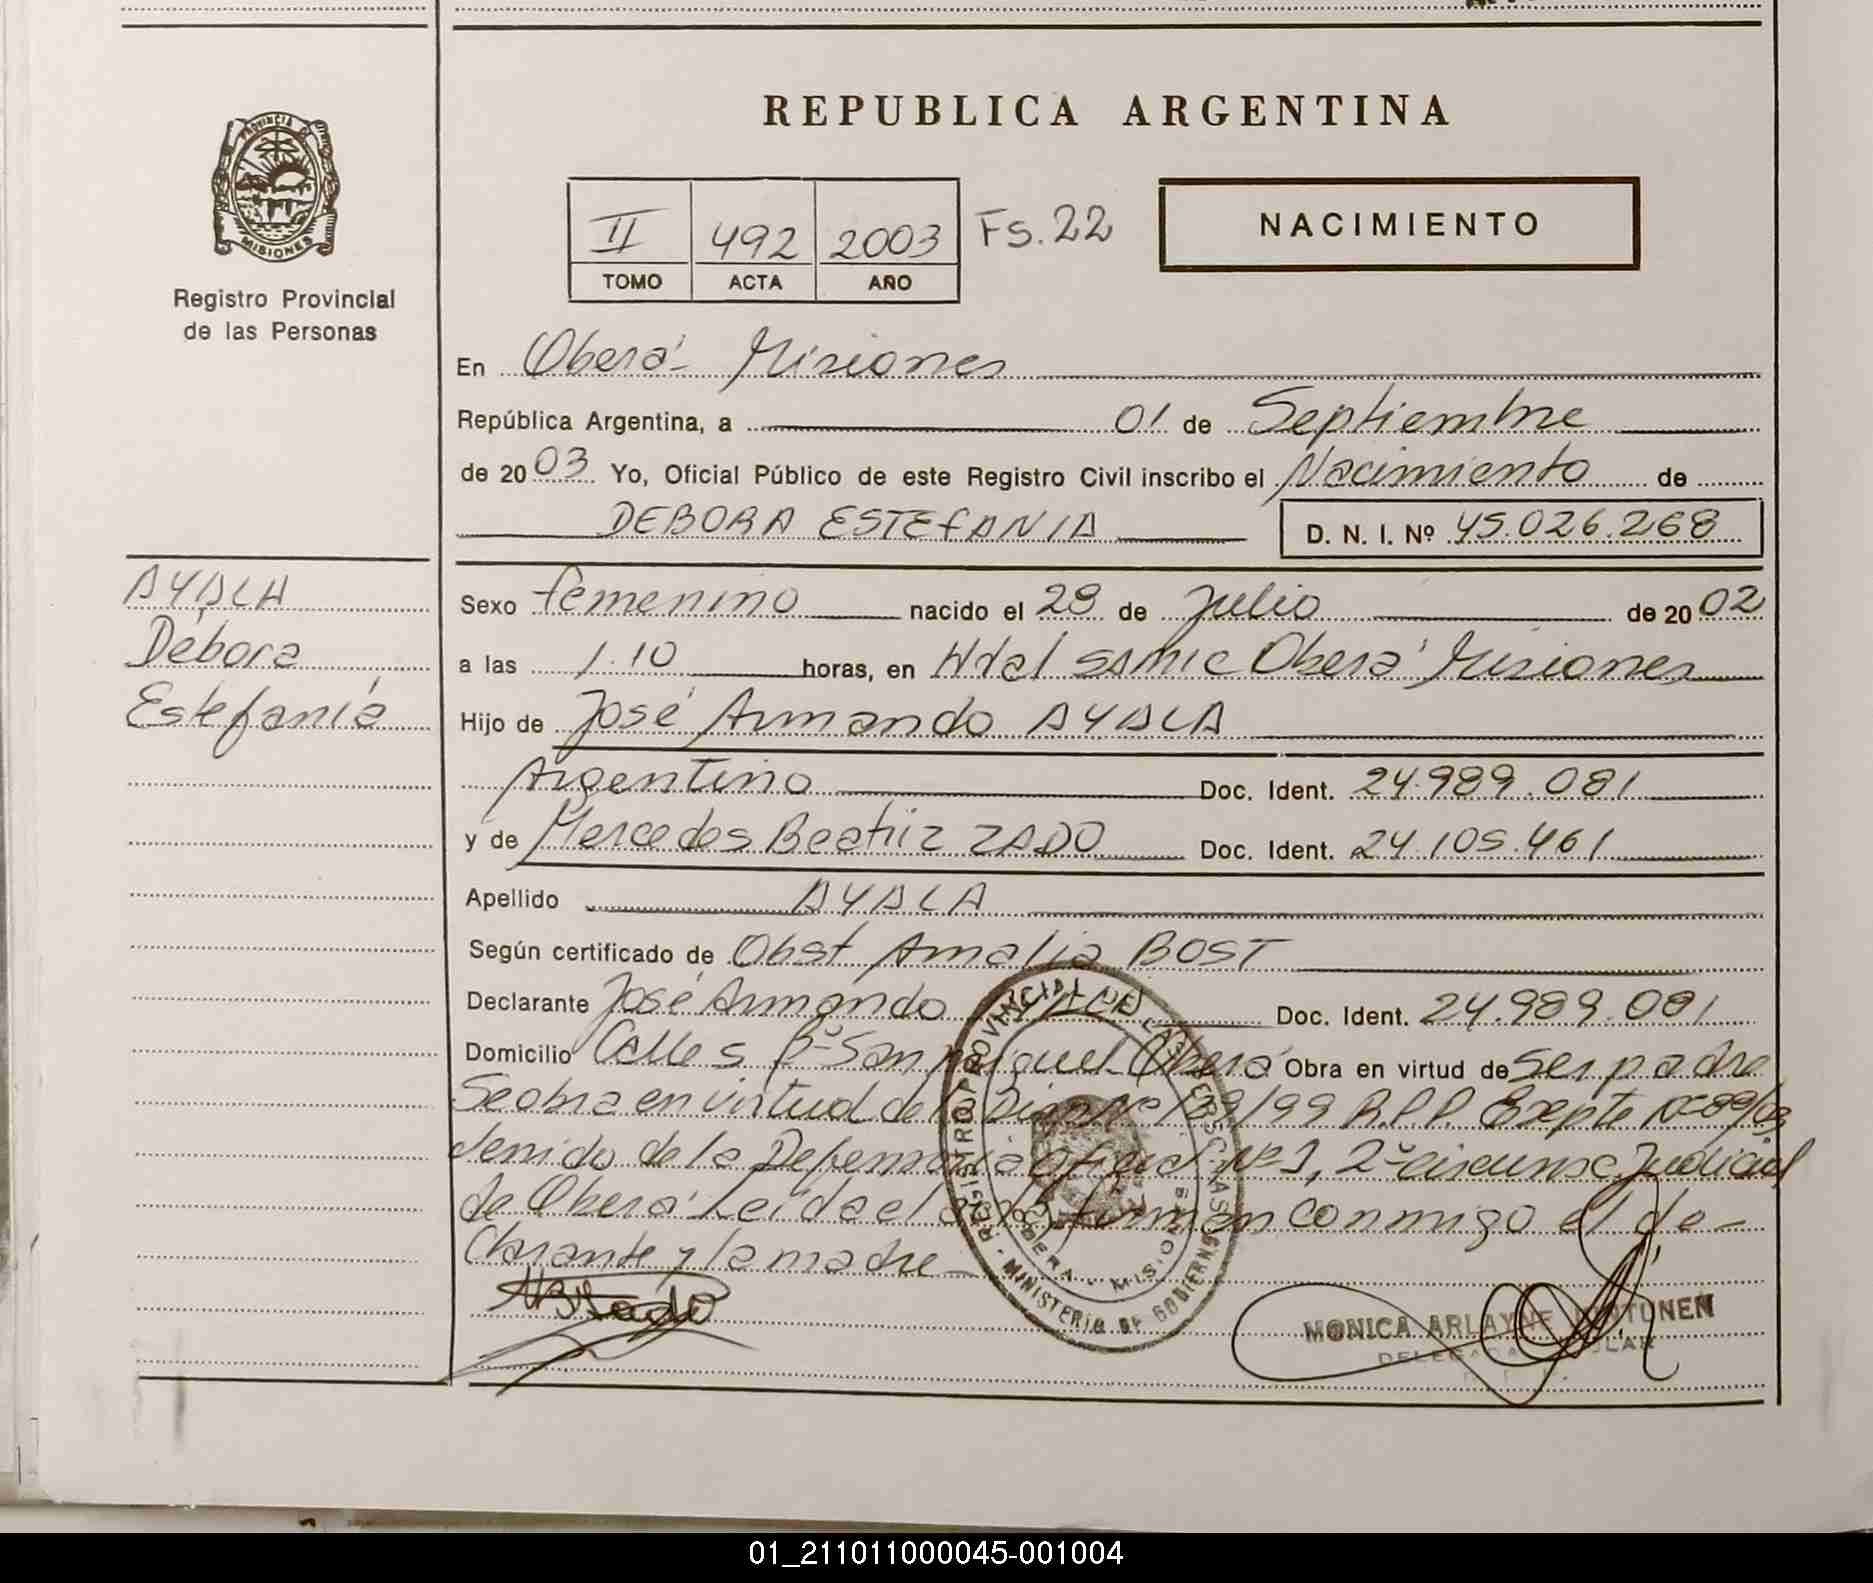 REPUBLICA ARGENTINA
PROVINCIA DE
MISIONES
Registro Provincial
de las Personas
II 492 2003 Fs. 22
TOMO ACTA AÑO
NACIMIENTO
En Oberá - Misiones
República Argentina, a 01 de Septiembre
de 2003 Yo, Oficial Público de este Registro Civil inscribo el Nacimiento de
DEBORA ESTEFANIA D. N. I. Nº 45.026.268
AYALA
Débora
Estefanía
Sexo femenino nacido el 28 de Julio de 2002
a las 1.10 horas, en Htal SAMIC Oberá Misiones
Hijo de José Armando AYALA
Argentino Doc. Ident. 24.989.081
y de Mercedes Beatriz ZADO Doc. Ident. 24.105.461
Apellido AYALA
Según certificado de Obst Amalia BOST
Declarante José Armando AYALA Doc. Ident. 24.989.081
Domicilio Calle s Bº San Miguel Oberá Obra en virtud de ser padre
Se obra en virtud de la /99 R.P.P. Expte Nº 89/03
venido de la Defensoría Oficial Nº 1, 2º circunsc Judicial
de Oberá Leída el acta firman conmigo el de-
clarante y la madre
REGISTRO PROVINCIAL DE LAS PERSONAS
MINISTERIO DE GOBIERNO
OBERA - MISIONES
MONICA ARLAYNE
01_211011000045-001004